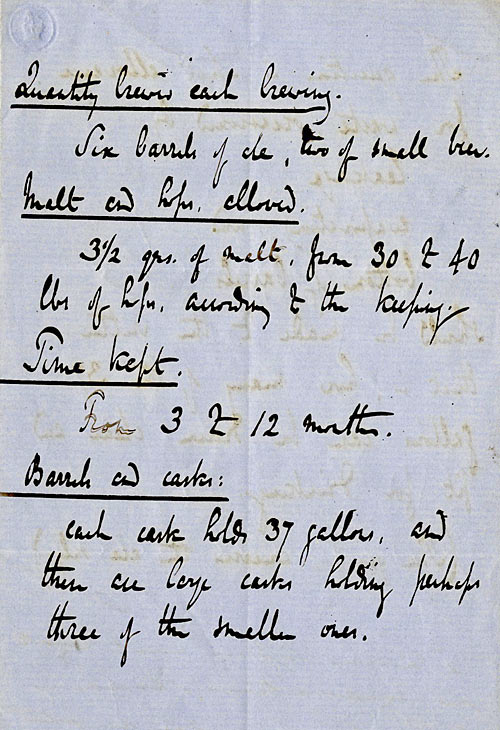 Quantity brewed each brewing.
Six barrels of ale, two of small beer.
Malt and hops, allowed.
3½ qrs. of malt, from 30 to 40
lbs of hops, according to the keeping.
Time kept.
From 3 to 12 months.
Barrels and casks:
each cask holds 37 gallons, and
there are large casks holding perhaps
three of the smaller ones.